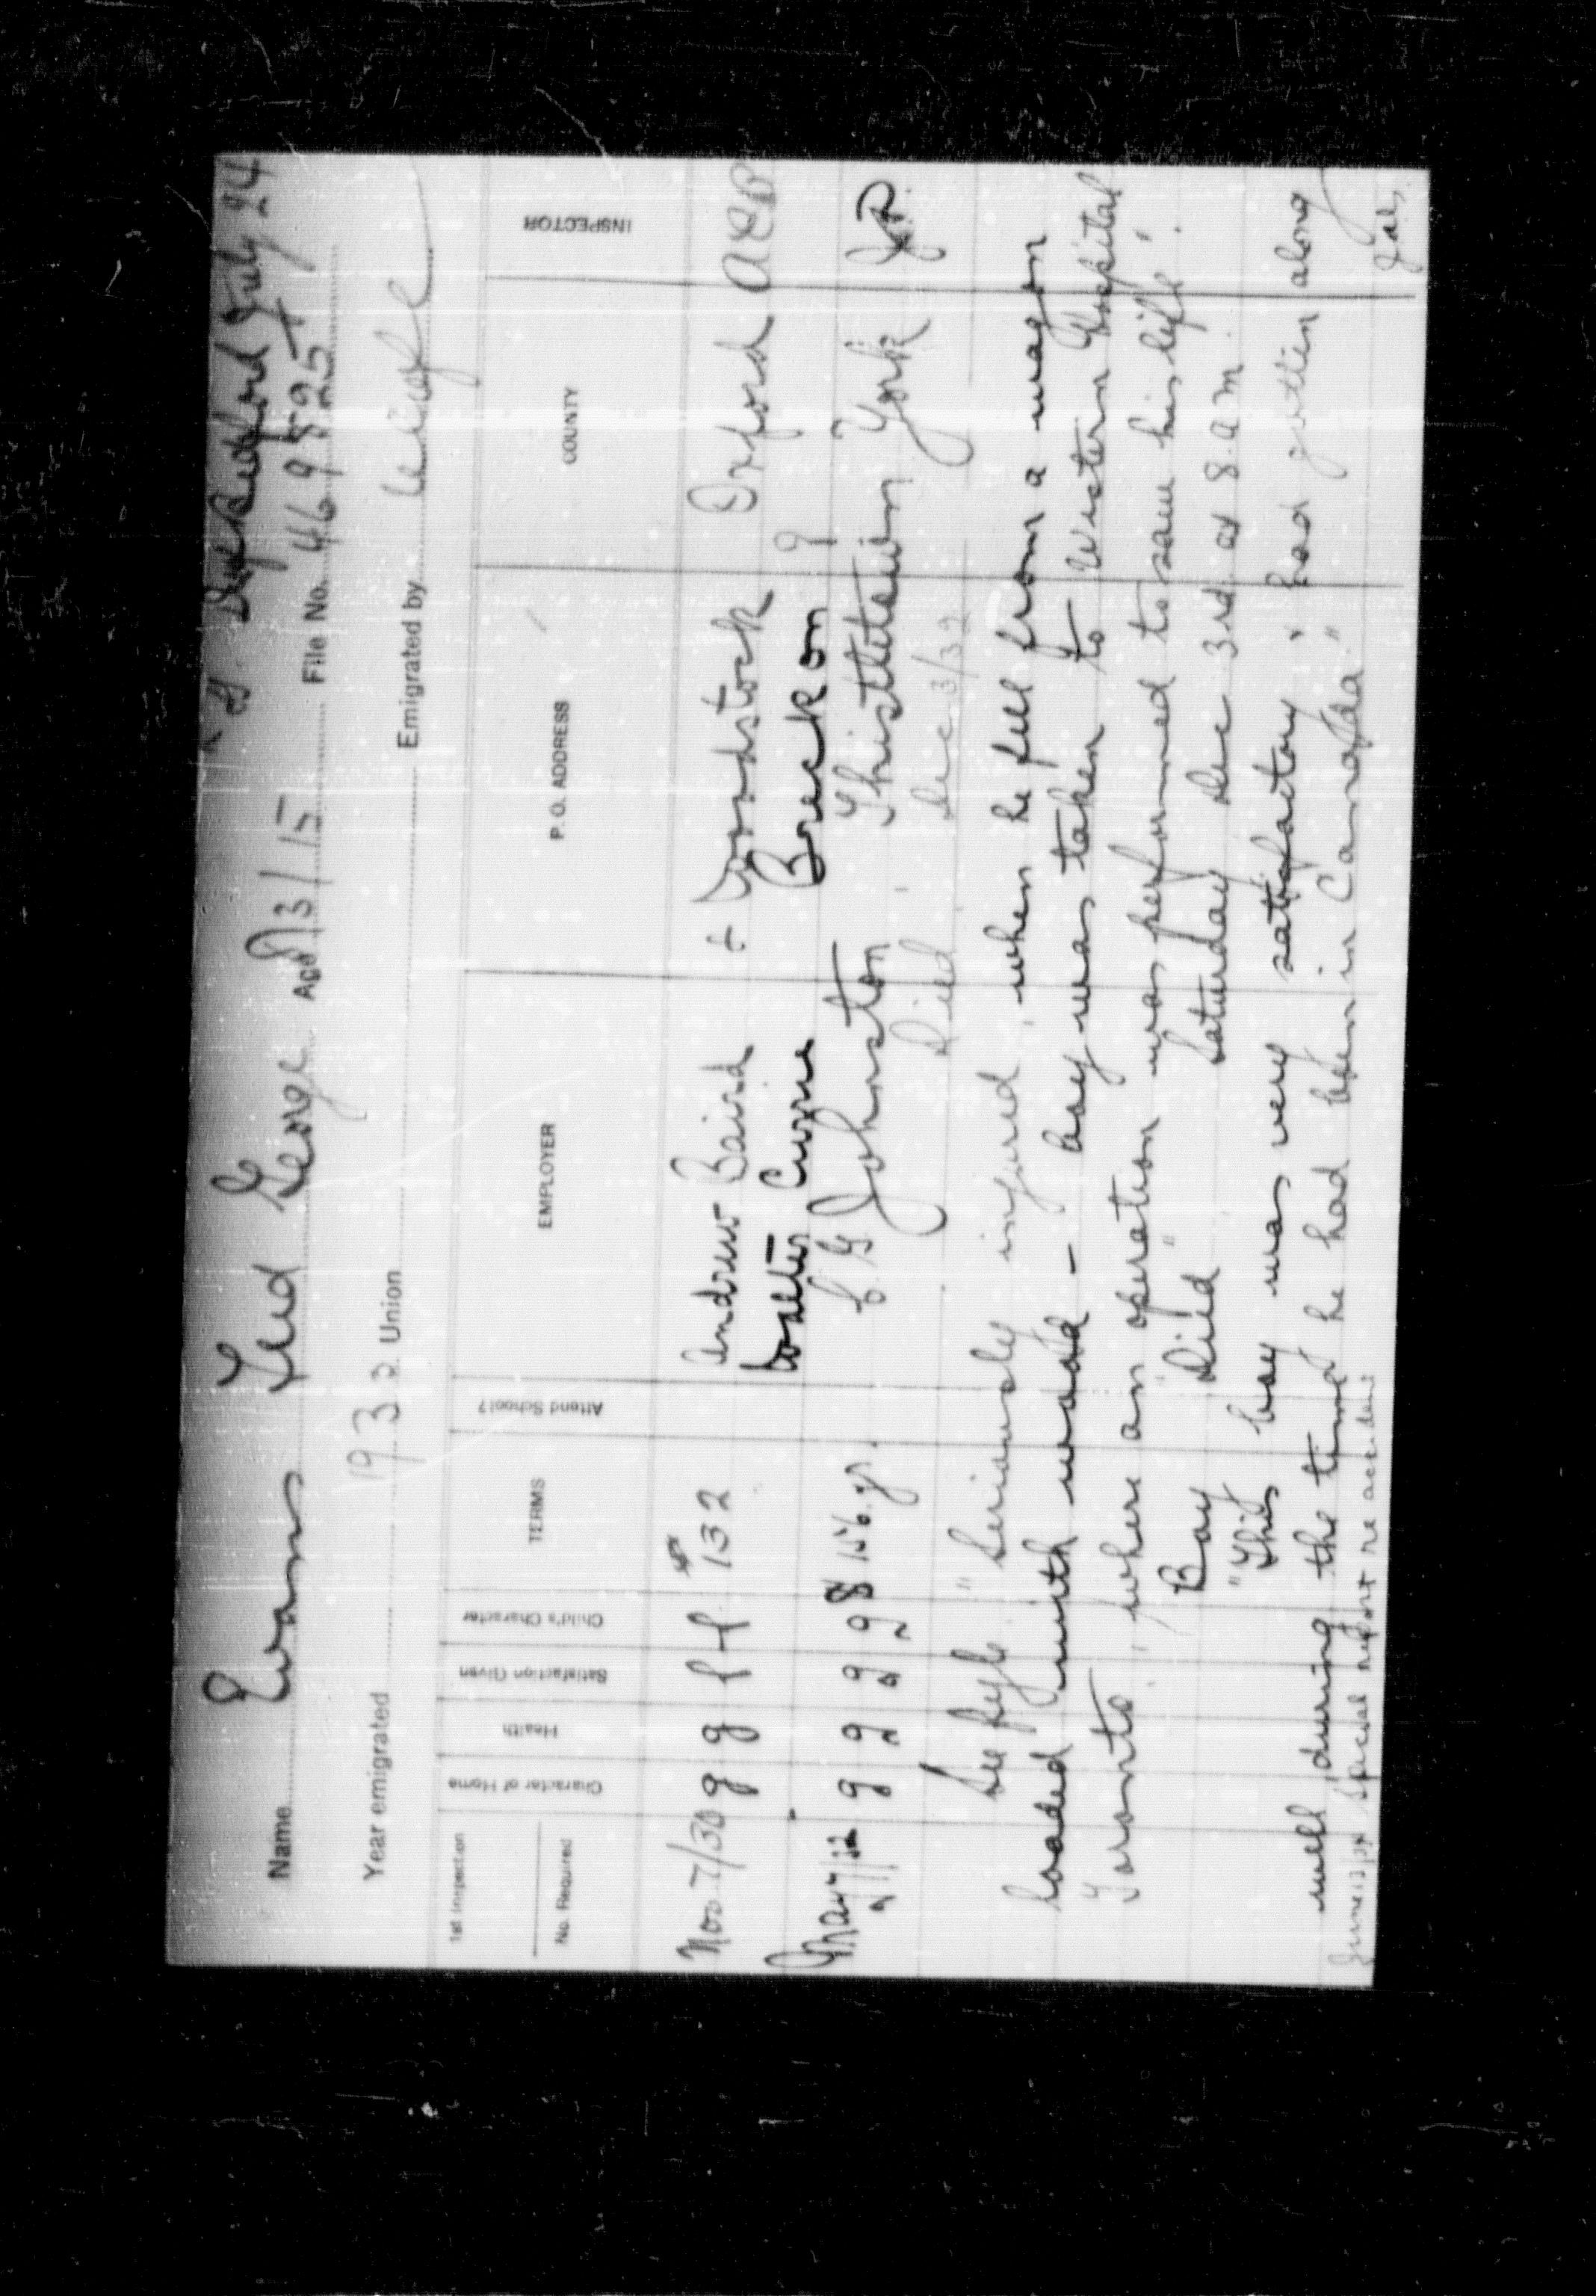 S.S. Dependford July 24
Name Evans Fred George Age 13/15 File No. 469825
Year emigrated 1932 Union Emigrated by
1st Inspection
No. Required
Character of Home
Health
Satisfaction Given
Child's Character
TERMS
Attend School?
EMPLOYER
P. O. ADDRESS
COUNTY
INSPECTOR
Nov 7/30 g g f f $132 Andrew Baird Woodstock Oxford
Walter Currie Breckon
May 7/32 g g g g $156 yr. C G Johnston Thistletown York
Died Dec 3/32
See fyle "Seriously injured, when he fell from a wagon
loaded with wood - boy was taken to Western Hospital
Toronto, where an operation was performed to save his life".
Boy "Died" Saturday Dec 3rd at 8 a.m.
"This boy was very satisfactory & had gotten along
well during the time he had been in Canada"
Special report re accident